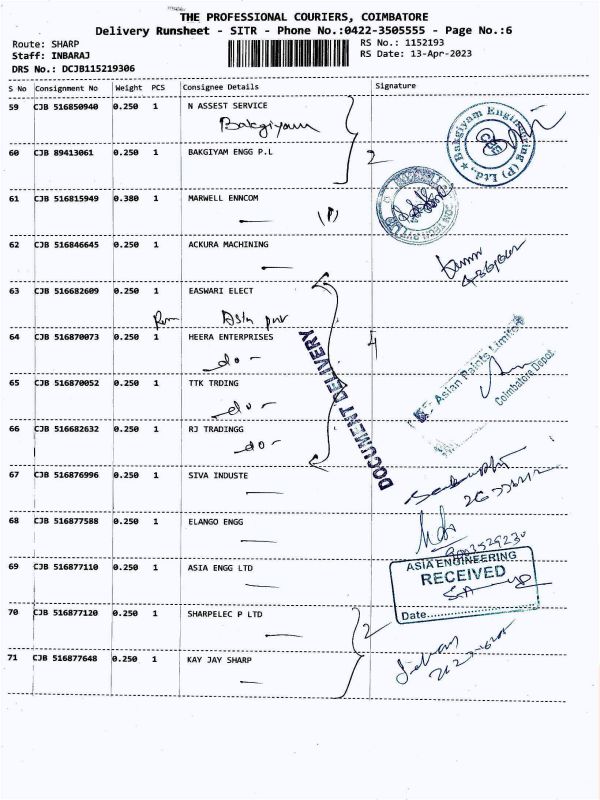 THE PROFESSIONAL COURIERS, COIMBATORE
Delivery Runsheet - SITR - Phone No.:0422-3505555 - Page No.:6
Route: SHARP
RS No.: 1152193
Staff: INBARAJ
RS Date: 13-Apr-2023
DRS No.: DCJB115219306
S No Consignment No Weight PCS Consignee Details Signature
59 CJB 516850940 0.250 1 N ASSEST SERVICE
Bakgiyam
Bakgiyam Engineering (P) Ltd.,
60 CJB 89413061 0.250 1 BAKGIYAM ENGG P.L
2
61 CJB 516815949 0.380 1 MARWELL ENNCOM
(1)
62 CJB 516846645 0.250 1 ACKURA MACHINING
63 CJB 516682609 0.250 1 EASWARI ELECT
Asia
64 CJB 516870073 0.250 1 HEERA ENTERPRISES
4
do -
DOCUMENT DELIVERY
Asian Paints Limited
Coimbatore Depot
65 CJB 516870052 0.250 1 TTK TRDING
do -
66 CJB 516682632 0.250 1 RJ TRADINGG
do -
67 CJB 516876996 0.250 1 SIVA INDUSTE
68 CJB 516877588 0.250 1 ELANGO ENGG
69 CJB 516877110 0.250 1 ASIA ENGG LTD
ASIA ENGINEERING
RECEIVED
Date
70 CJB 516877120 0.250 1 SHARPELEC P LTD
2
71 CJB 516877648 0.250 1 KAY JAY SHARP